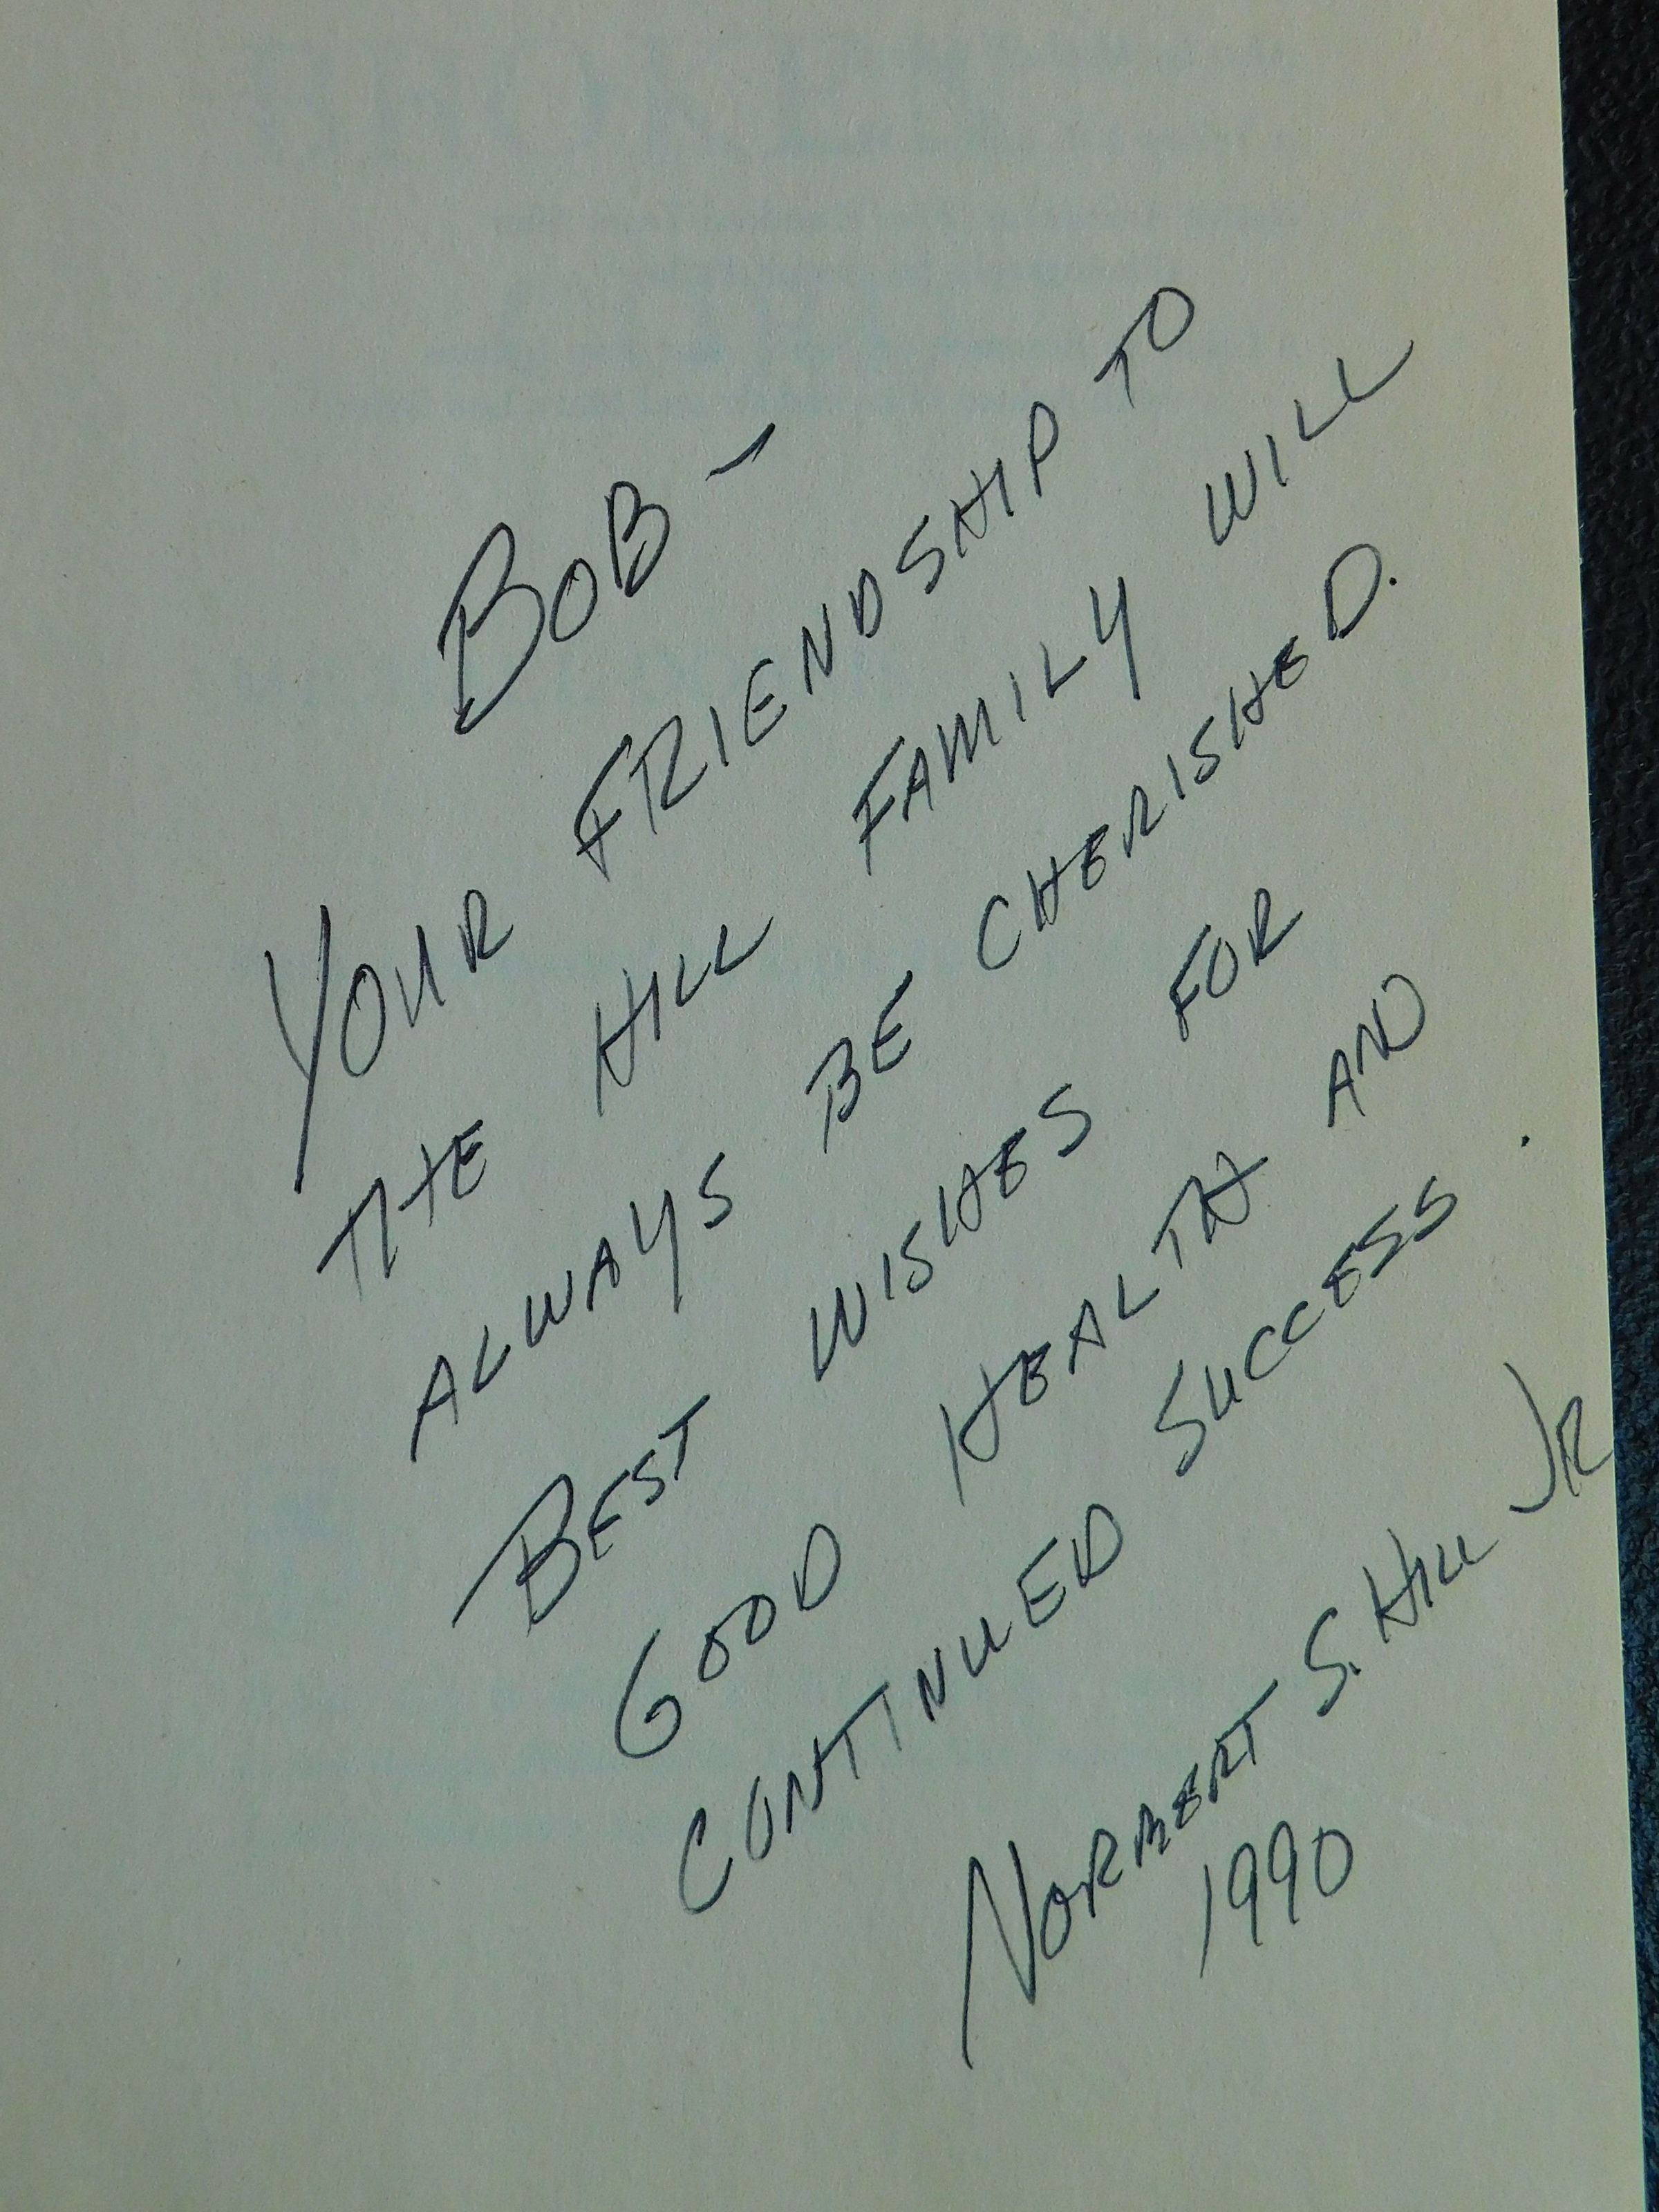 BOB –
YOUR FRIENDSHIP TO
THE HILL FAMILY WILL
ALWAYS BE CHERISHED.
BEST WISHES FOR
GOOD HEALTH AND
CONTINUED SUCCESS.
NORBERT S. HILL JR
1990